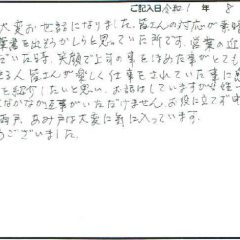 ご記入日 令和 1 年 8
大変お世話になりました。皆さんの対応が素晴
葉書を出そうかしらと思っていた所です。営業の近
いた時、笑顔で上司の事をほめた事がとても
る人皆さんが楽しく仕事をされていた事に
を紹介したいと思い、お話はしていますが
なかなか返事がいただけません。お役に立てず申
雨戸、あみ戸は大変に気に入っています。
うございました。